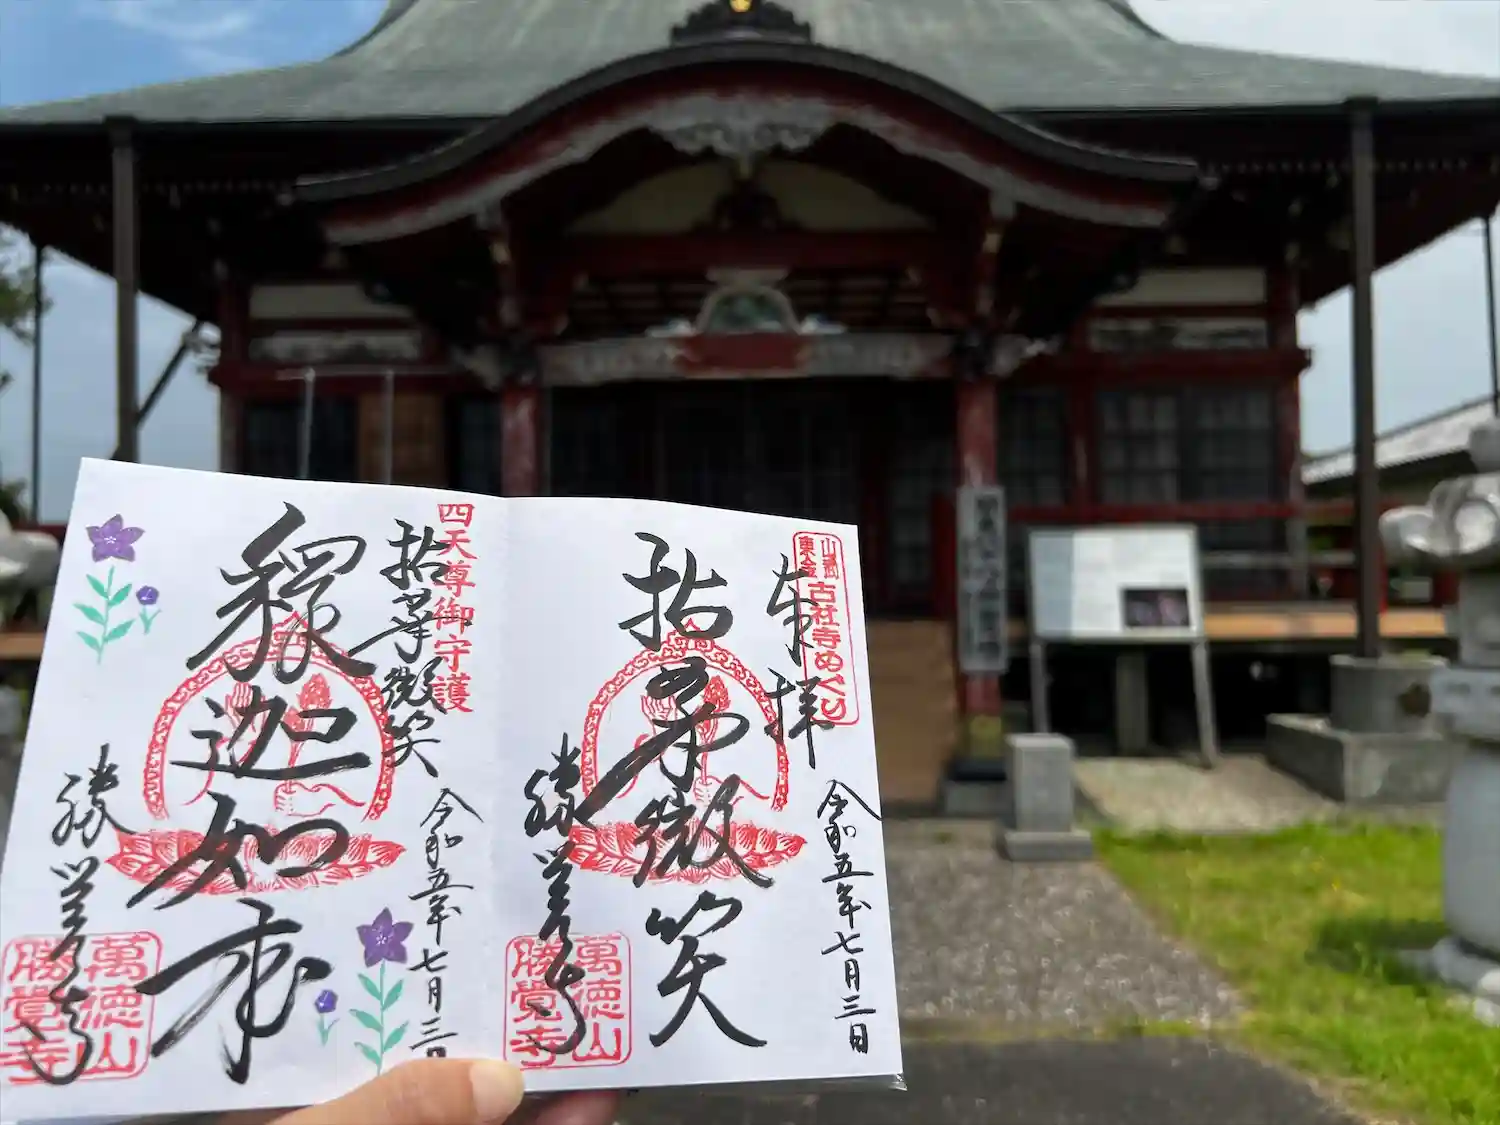 奉拝
山武
東金
古社寺めぐり
拈華微笑
令和五年七月三日
勝覚寺
萬徳山
勝覺寺
四天尊御守護
拈華微笑
釋迦如来
令和五年七月三日
勝覚寺
萬徳山
勝覺寺